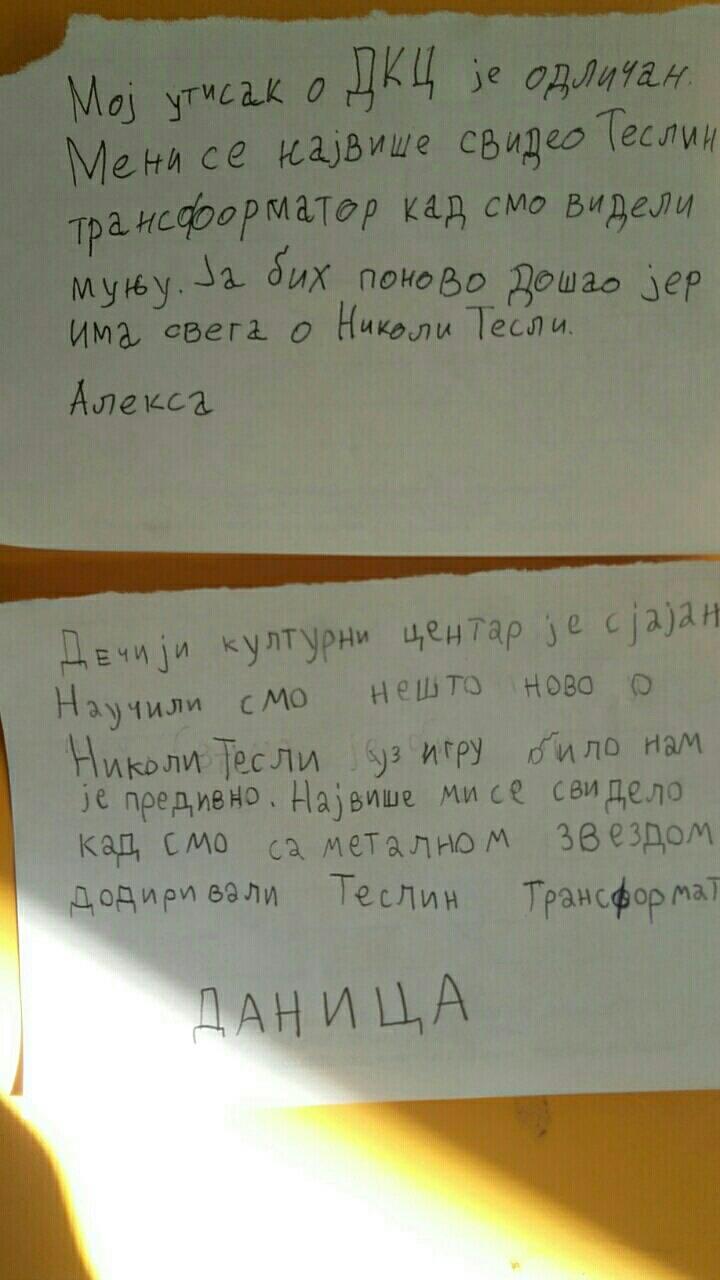 Мој утисак о ДКЦ је одличан.
Мени се највише свидео Теслин
трансформатор кад смо видели
муњу. Ја бих поново дошао јер
има свега о Николи Тесли.
Алекса
Дечији културни центар је сјајан
Научили смо нешто ново о
Николи Тесли уз игру било нам
је предивно. Највише ми се свидело
кад смо са металном звездом
додиривали Теслин Трансформат
ДАНИЦА